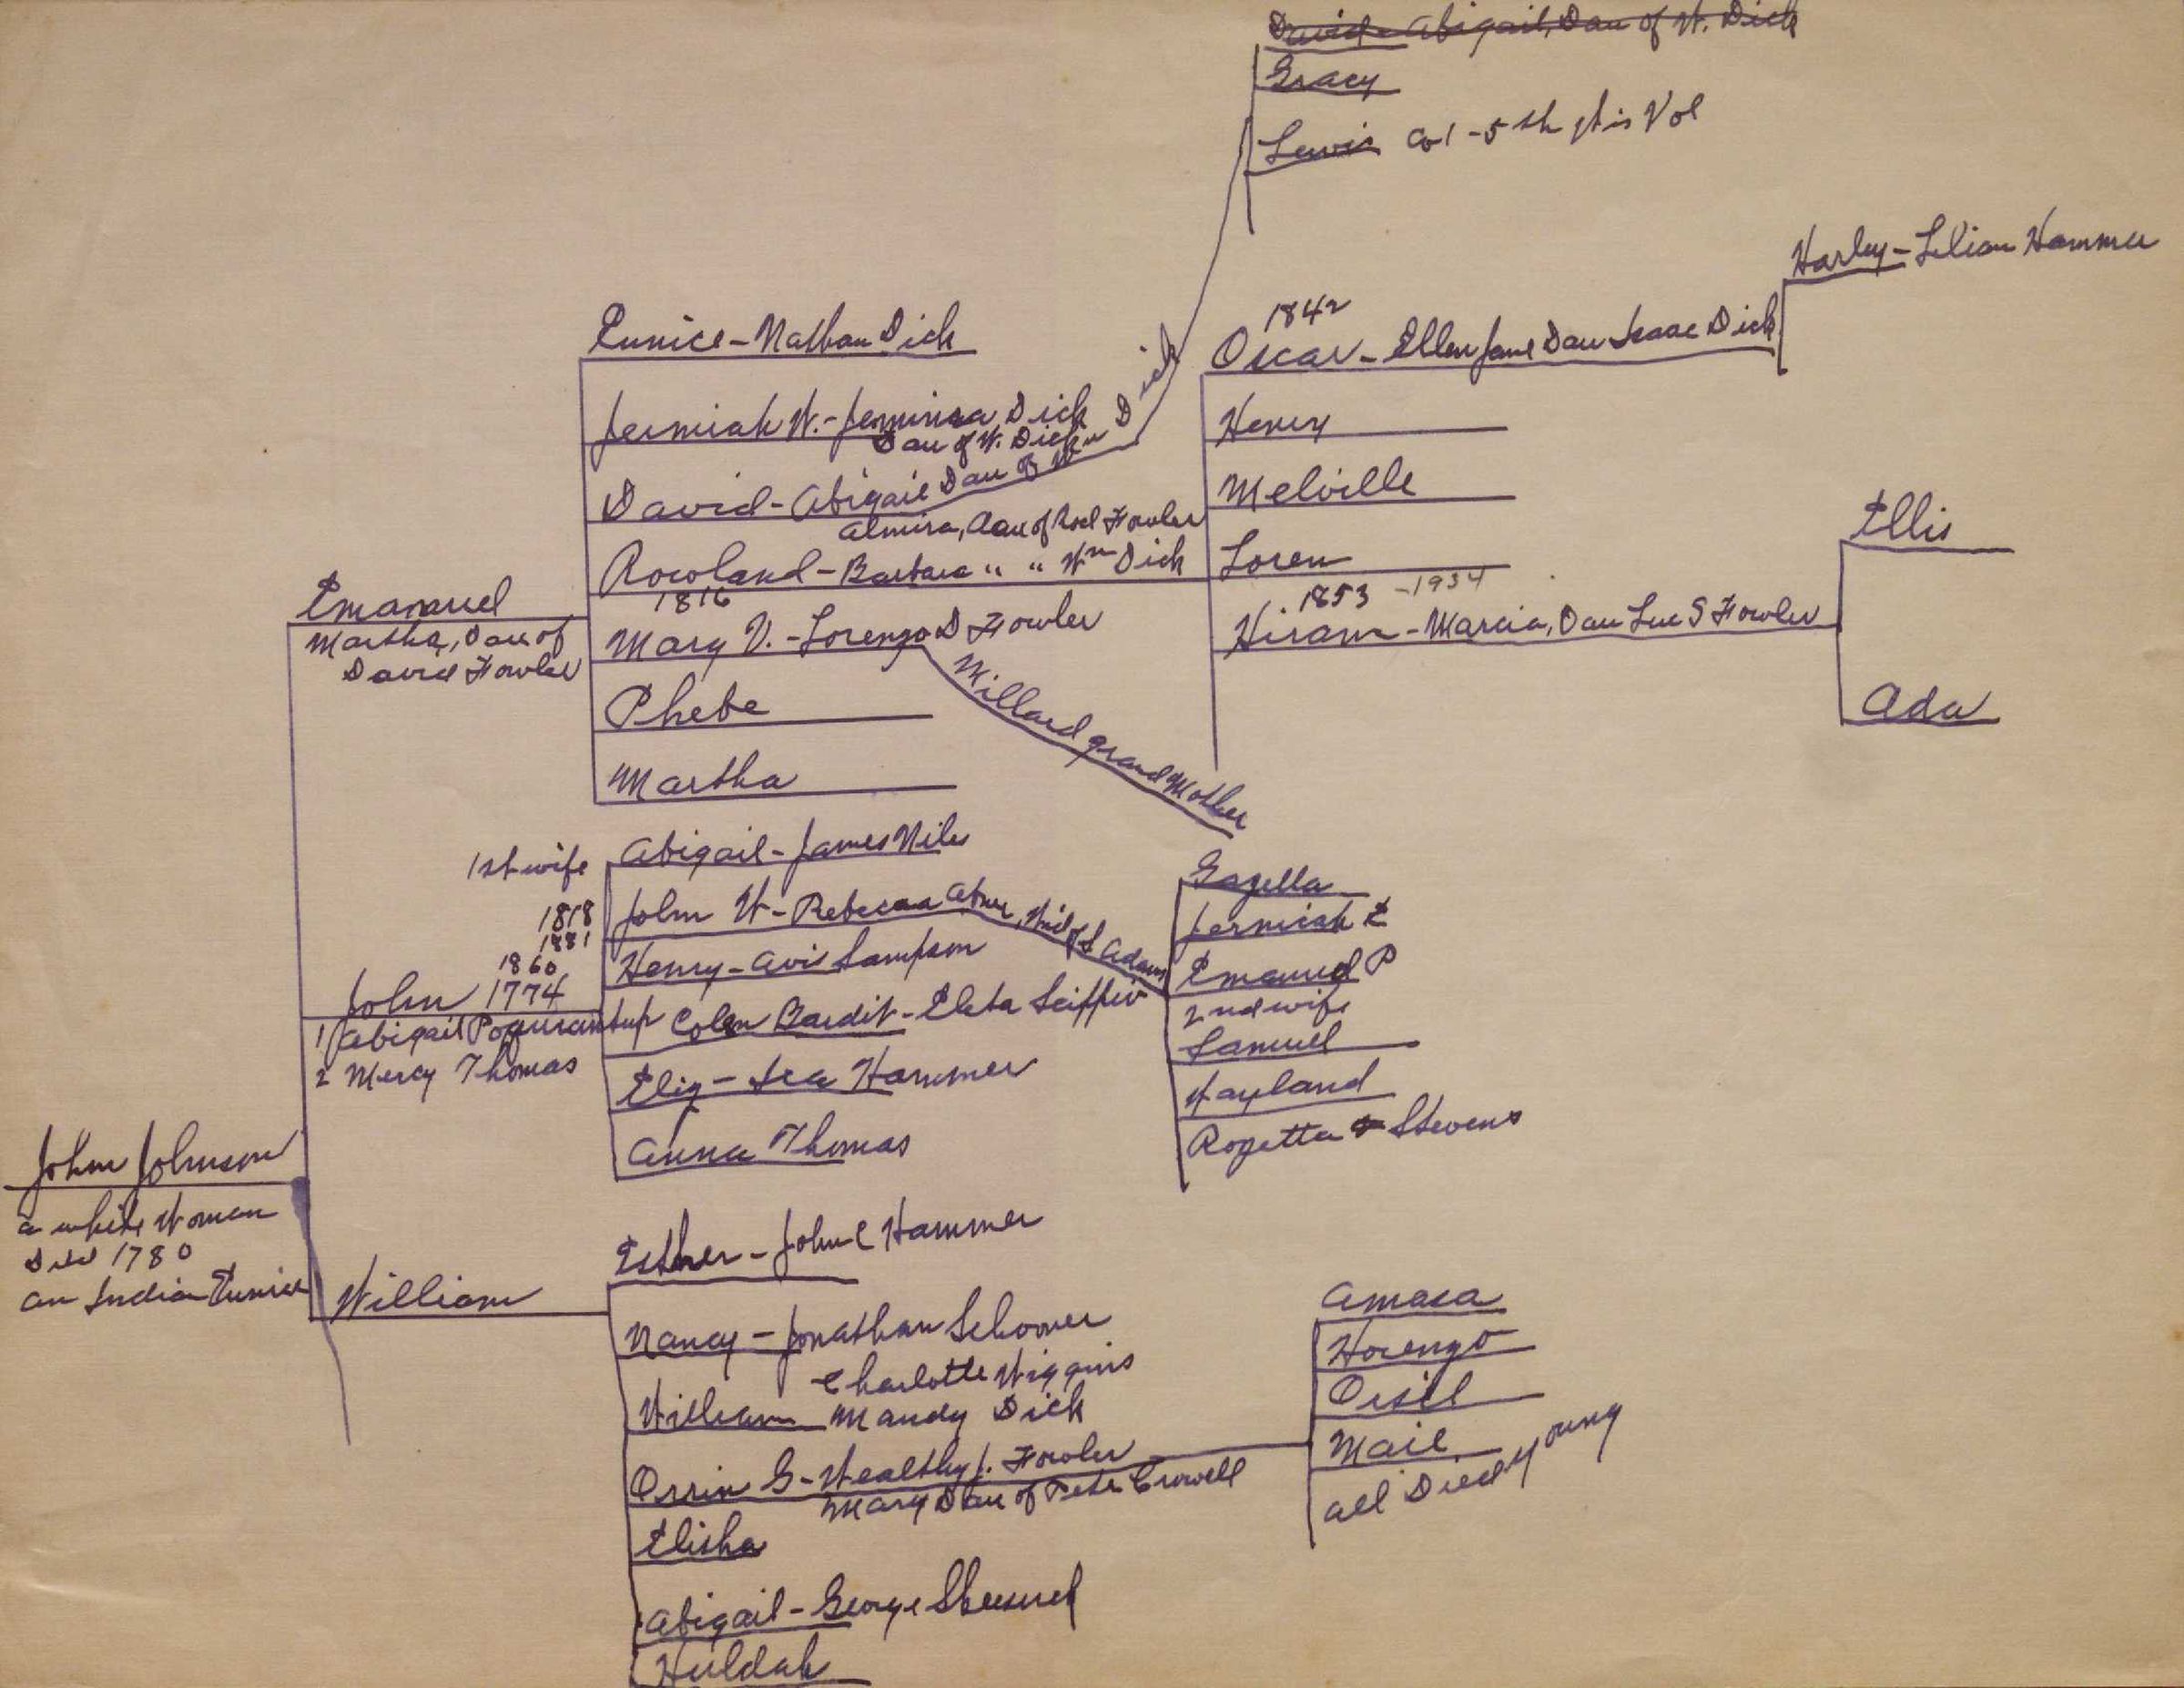 David - Abigail, Dau of W. Dick
Gracy
Lewis Co I - 5th Wis Vol
Harley - Lilian Hammer
1842
Oscar - Ellen Jane Dau Isaac Dick
Henry
Melville
Loren
1853 - 1934
Hiram - Marcia, Dau Luc S Fowler
Ellis
Ada
Eunice - Nathan Dick
Jermiah W. - Jemima Dick
Dau of W. Dick
David - Abigail Dau of Wm Dick
Almira, Dau of Rod Fowler
Rowland - Barbara " " Wm Dick
1816
Mary V. - Lorenzo D Fowler
Millard grand Mother
Phebe
Martha
Emanuel
Martha, Dau of
David Fowler
1st wife
Abigail - James Niles
1818
1881
John W - Rebecca Abner, Wid of S Adams
1860
Henry - Avi Sampson
John 1774
1 Abigail Poqurantup
Colen Bardit - Eleta
2 Mercy Thomas
Eliz - Ira Hammer
Anna Thomas
Gazella
Jermiah E
Emanuel P
2nd wife
Samuel
Wayland
Rozetta Stevens
John Johnson
a white Woman
Died 1780
an Indian Eunice
William
Esther - John C Hammer
Nancy - Jonathan Schooner
Charlotte Wiggins
William Mandy Dick
Orrin G - Wealthy J. Fowler
Mary Dau of Pete Crowell
Elisha
Abigail - George
Huldah
Amasa
Horengo
Orsil
Mail
all Died young